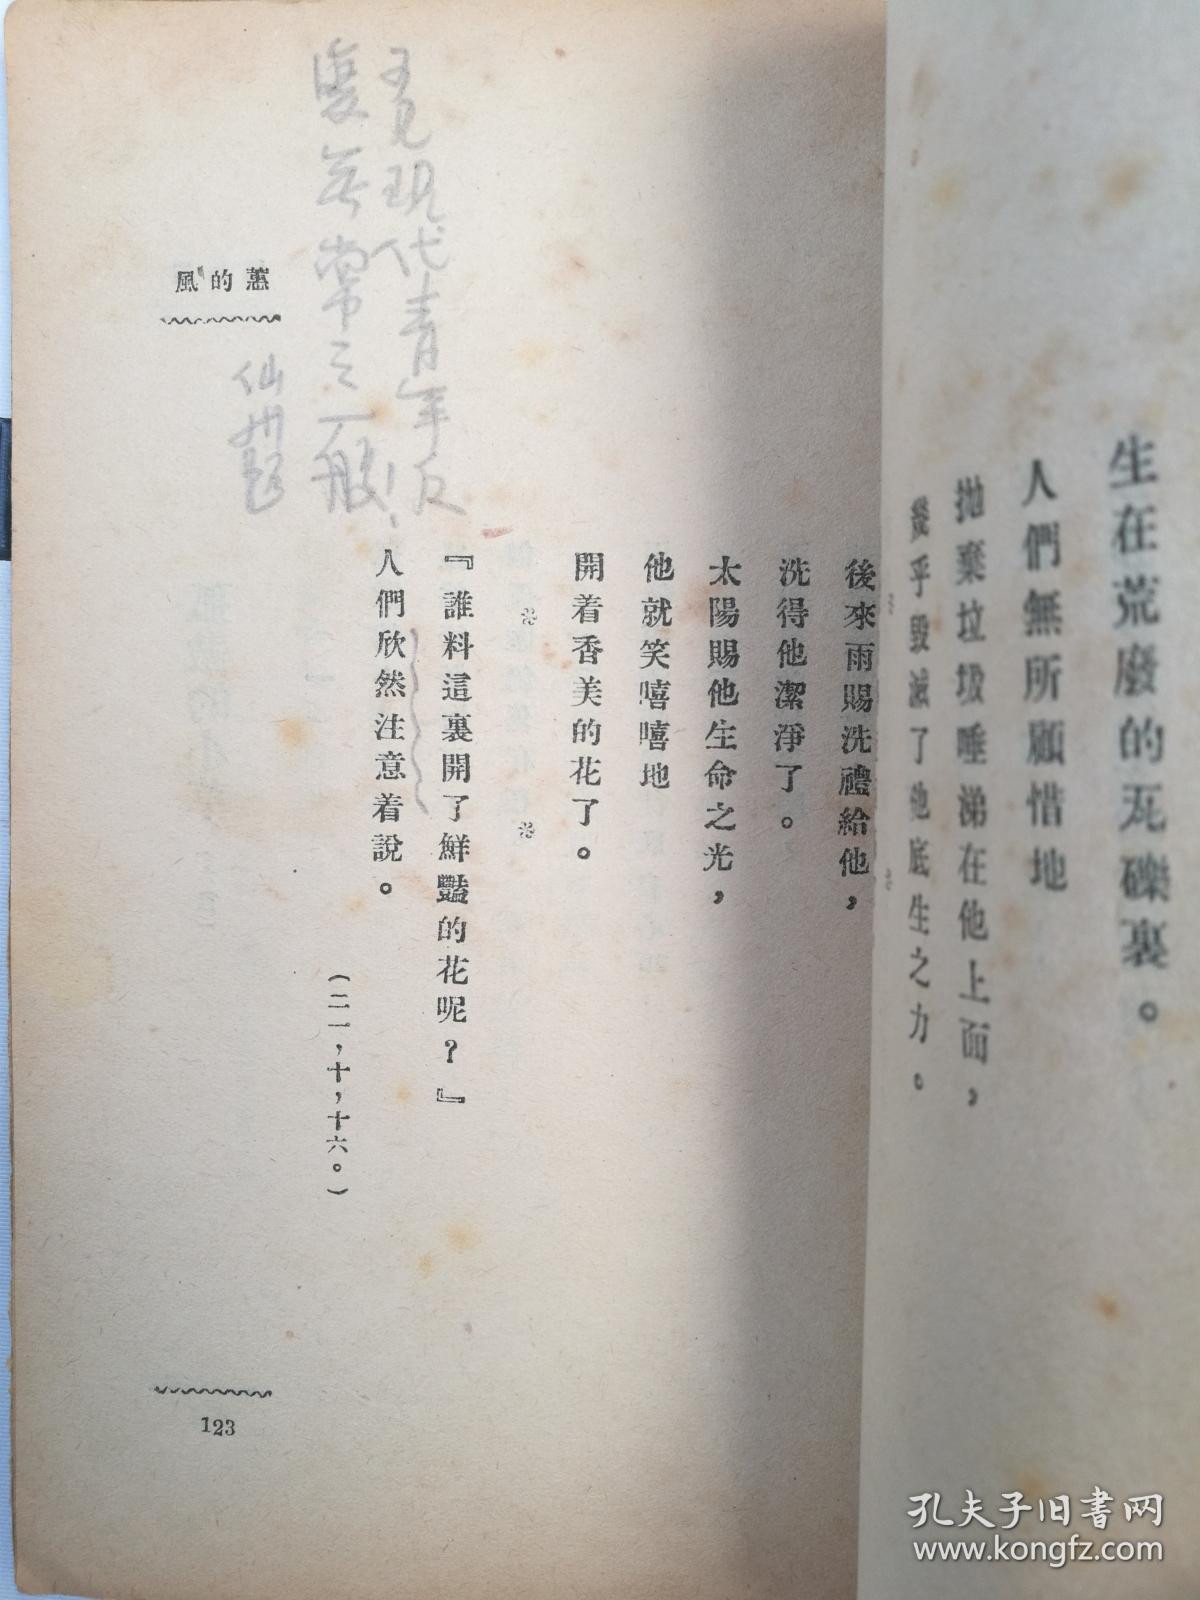 生在荒廢的瓦礫裏。
人們無所顧惜地
拋棄垃圾唾涕在他上面，
幾乎毀滅了他底生之力。
後來雨賜洗禮給他，
洗得他潔淨了。
太陽賜他生命之光，
他就笑嘻嘻地
開着香美的花了。
※ ※
『誰料這裏開了鮮豔的花呢？』
人們欣然注意着說。
（二一，十，十六。）
現代青年反
無常之一般！
仙
蕙的風
123
孔夫子旧书网
www.kongfz.com